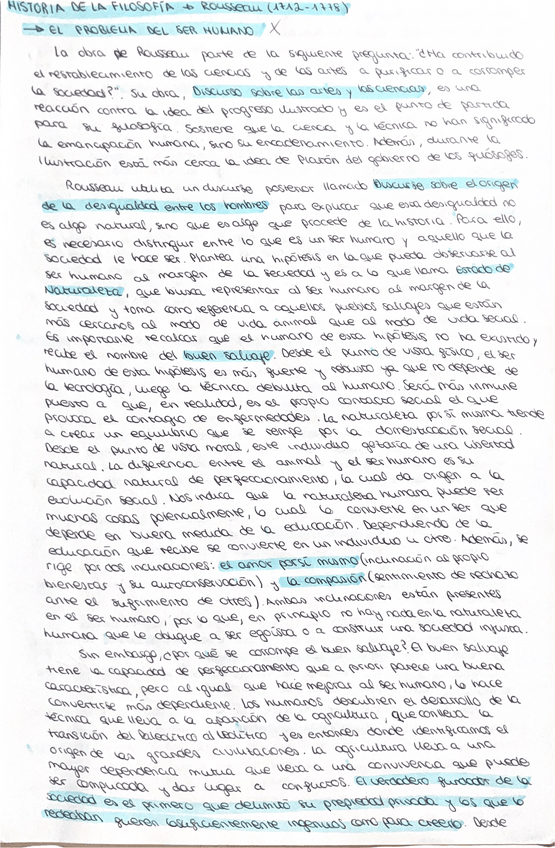 HISTORIA DE LA FILOSOFÍA → Rousseau (1712-1778)
→ EL PROBLEMA DEL SER HUMANO X
La obra de Rousseau parte de la siguiente pregunta: "¿Ha contribuido
el restablecimiento de las ciencias y de las artes a purificar o a corromper
la sociedad?". Su obra, Discurso sobre las artes y las ciencias, es una
reacción contra la idea del progreso ilustrado y es el punto de partida
para su filosofía. Sostiene que la ciencia y la técnica no han significado
la emancipación humana, sino su encadenamiento. Además, durante la
Ilustración está más cerca la idea de Platón del gobierno de los filósofos.
Rousseau utiliza un discurso posterior llamado Discurso sobre el origen
de la desigualdad entre los hombres para explicar que esta desigualdad no
es algo natural, sino que es algo que procede de la historia. Para ello,
es necesario distinguir entre lo que es un ser humano y aquello que la
sociedad le hace ser. Plantea una hipótesis en la que pueda observarse al
ser humano al margen de la sociedad y es a lo que llama estado de
Naturaleza, que busca representar al ser humano al margen de la
sociedad y toma como referencia a aquellos pueblos salvajes que están
más cercanos al modo de vida animal que al modo de vida social.
Es importante recalcar que el humano de esta hipótesis no ha existido y
recibe el nombre del buen salvaje. Desde el punto de vista físico, el ser
humano de esta hipótesis es más fuerte y robusto ya que no depende de
la tecnología, luego la técnica debilita al humano. Será más inmune
puesto a que, en realidad, es el propio contacto social el que
provoca el contagio de enfermedades. La naturaleza por sí misma tiende
a crear un equilibrio que se rompe por la domesticación social.
Desde el punto de vista moral, este individuo gozaría de una libertad
natural. La diferencia entre el animal y el ser humano es su
capacidad natural de perfeccionamiento, la cual da origen a la
evolución social. Nos indica que la naturaleza humana puede ser
muchas cosas potencialmente, lo cual lo convierte en un ser que
depende en buena medida de la educación. Dependiendo de la
educación que recibe se convierte en un individuo u otro. Además, se
rige por dos inclinaciones: el amor por sí mismo (inclinación al propio
bienestar y su autoconservación) y la compasión (sentimiento de rechazo
ante el sufrimiento de otros). Ambas inclinaciones están presentes
en el ser humano, por lo que, en principio no hay nada en la naturaleza
humana que le obligue a ser egoísta o a construir una sociedad injusta.
Sin embargo, ¿por qué se corrompe el buen salvaje? El buen salvaje
tiene la capacidad de perfeccionamiento que a priori parece una buena
característica, pero al igual que hace mejorar al ser humano, lo hace
convertirse más dependiente. Los humanos descubren el desarrollo de la
técnica que lleva a la aparición de la agricultura, que conlleva la
transición del Paleolítico al Neolítico y es entonces donde identificamos el
origen de las grandes civilizaciones. La agricultura lleva a una
mayor dependencia mutua que lleva a una convivencia que puede
ser complicada y dar lugar a conflictos. El verdadero fundador de la
sociedad es el primero que delimitó su propiedad privada y los que lo
rodeaban fueron lo suficientemente ingenuos como para creerlo. Desde